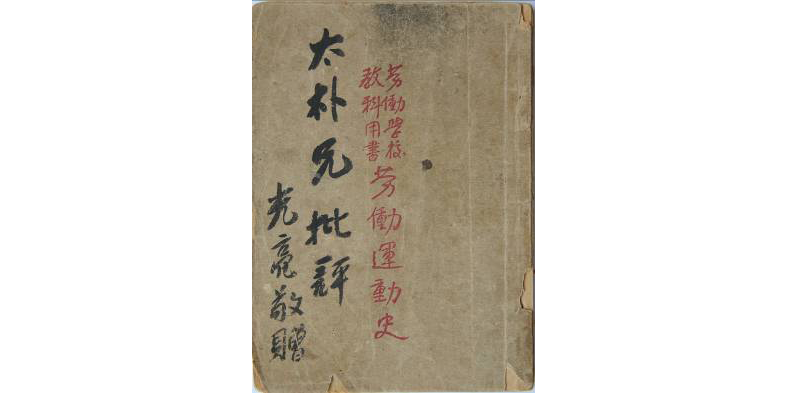 劳働学校
教科用書
劳働運動史
太朴兄批評
光亮敬贈